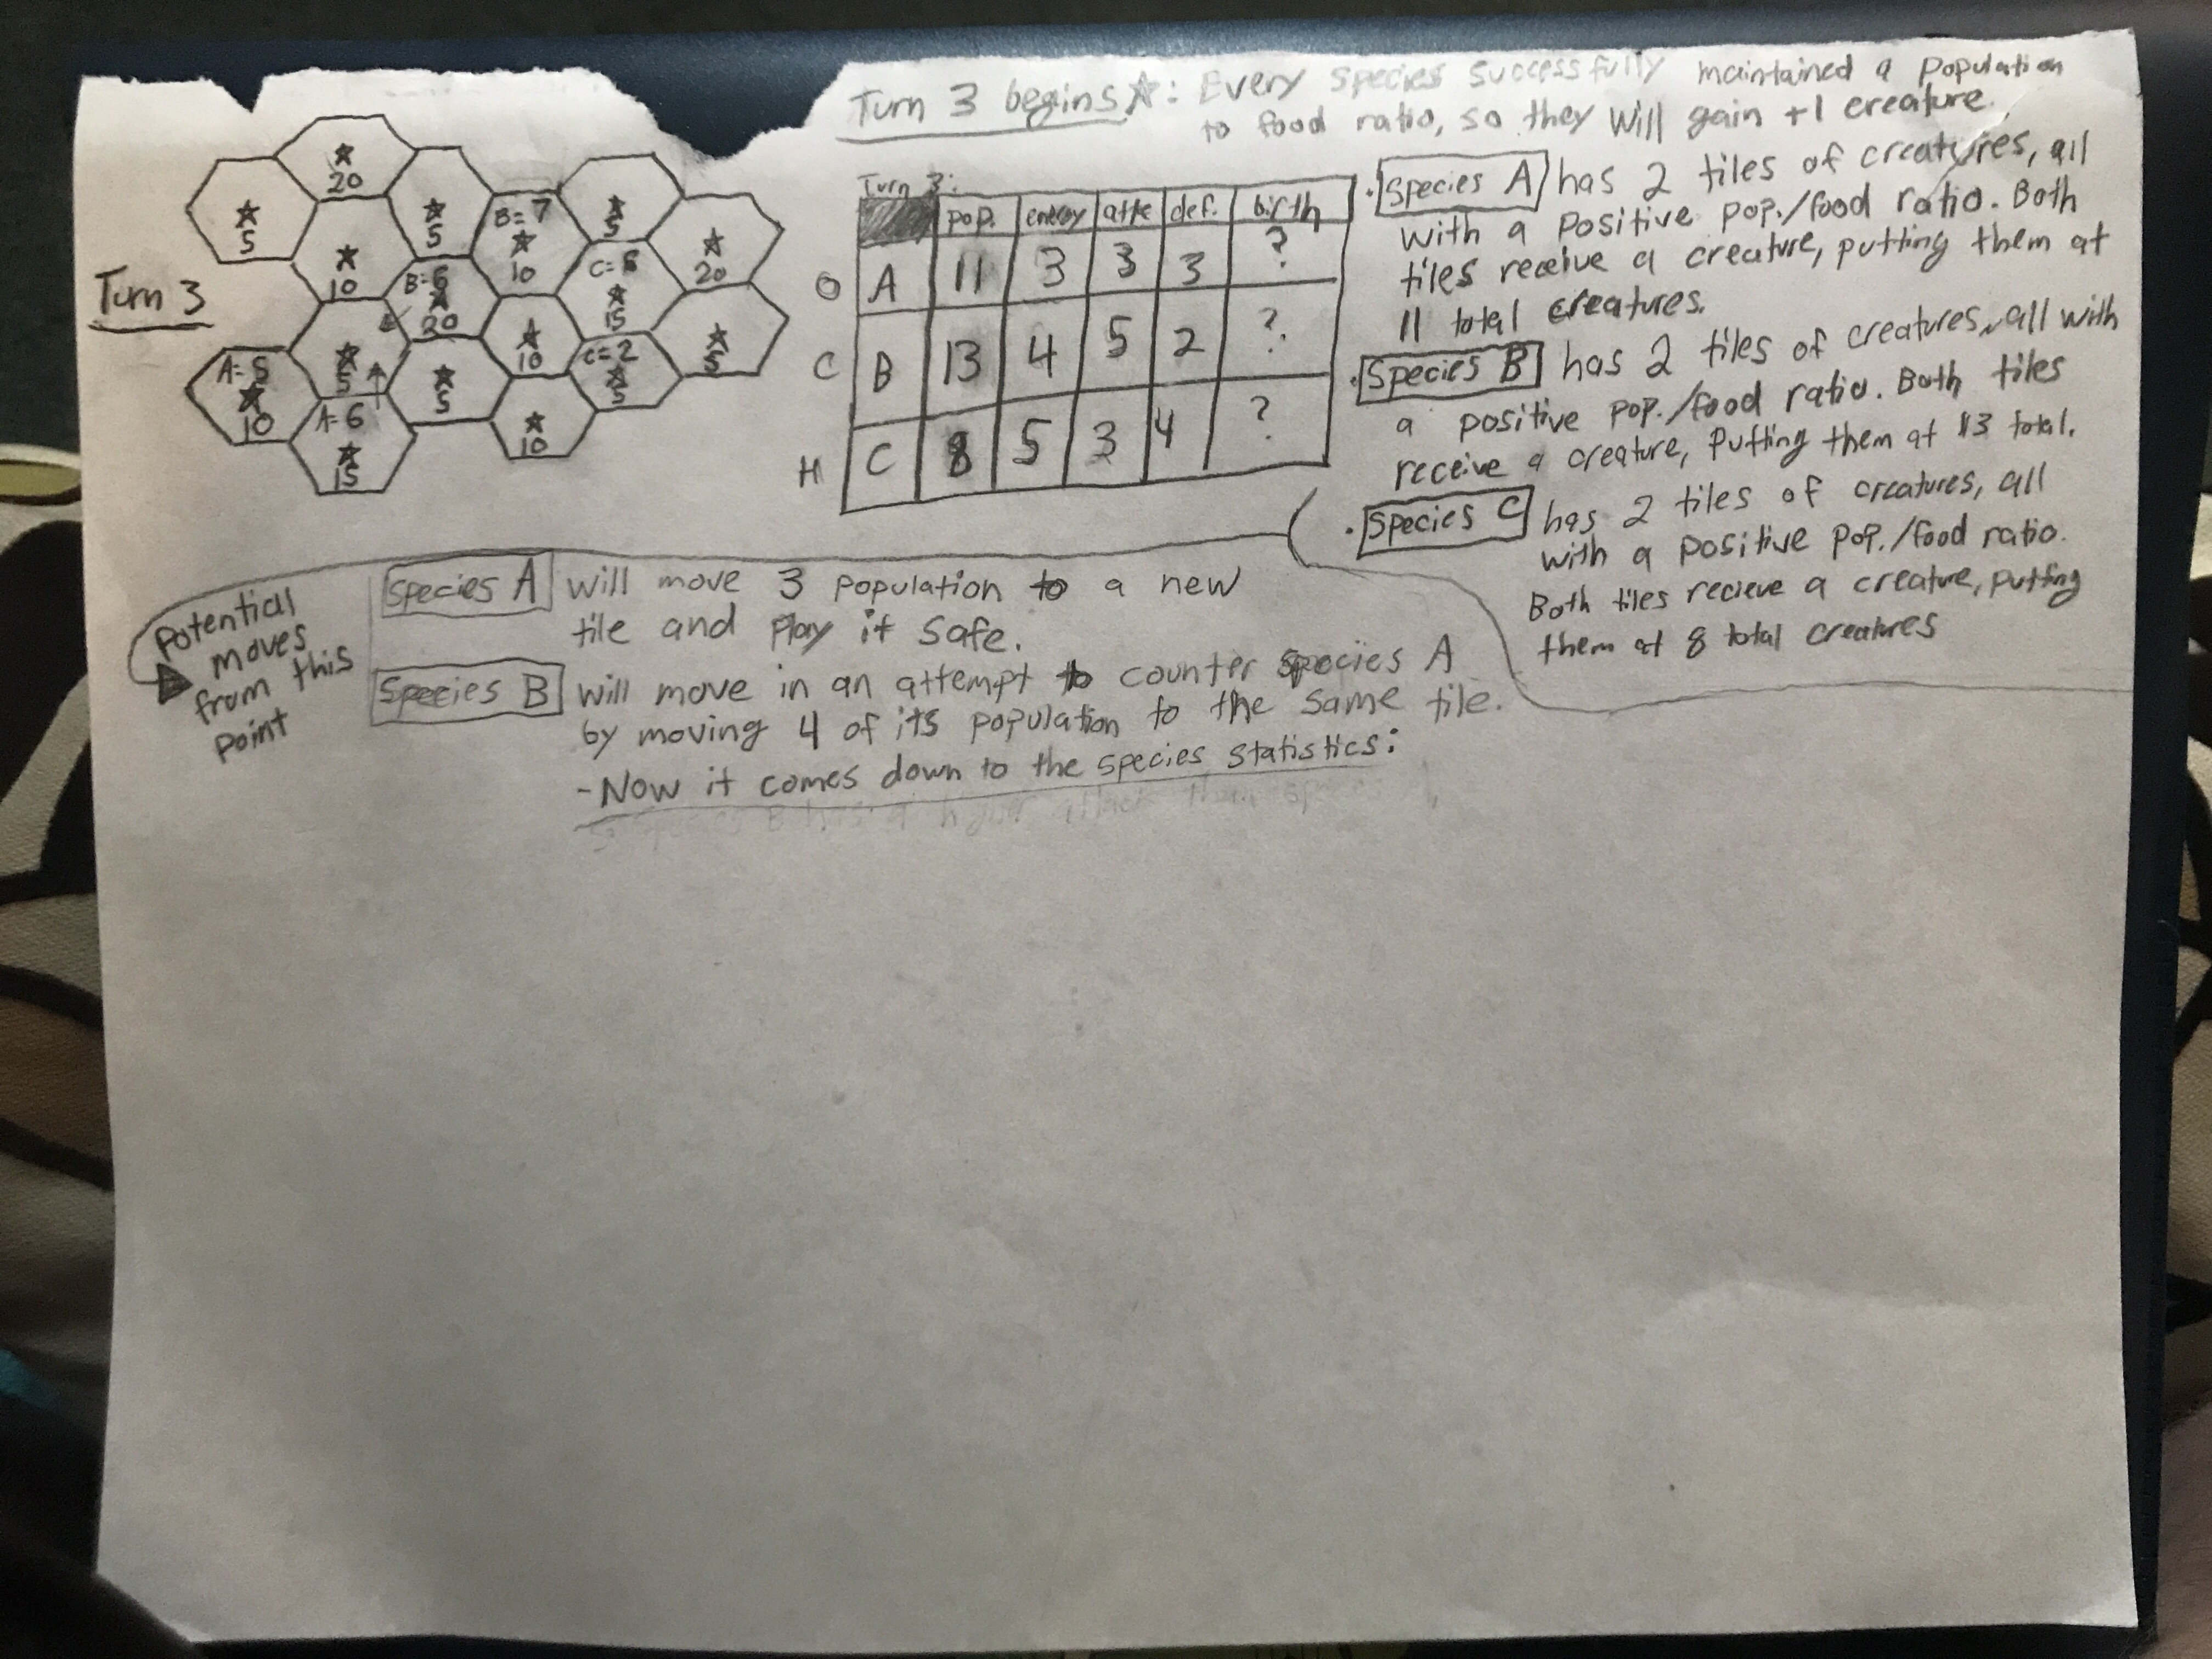 Turn 3 begins☆: Every species successfully maintained a population
to food ratio, so they will gain +1 creature.
Turn 3
☆ 20
☆ 5
☆ 5
B=7 ☆ 10
☆ 5
☆ 20
☆ 10
B=6 ☆ 20
C=6 ☆ 15
☆ 5
☆ 10
☆ 5
A=5 ☆ 10
☆ 5
C=2 ☆ 5
A=6 ☆ 15
☆ 10
Turn 3:
pop. energy attk def. birth
O A 11 3 3 3 ?
C B 13 4 5 2 ?
H C 8 5 3 4 ?
• Species A has 2 tiles of creatures, all
with a positive pop./food ratio. Both
tiles receive a creature, putting them at
11 total creatures.
• Species B has 2 tiles of creatures, all with
a positive pop./food ratio. Both tiles
receive a creature, putting them at 13 total.
• Species C has 2 tiles of creatures, all
with a positive pop./food ratio.
Both tiles recieve a creature, putting
them at 8 total creatures
Potential
moves
from this
point
Species A will move 3 population to a new
tile and play it safe.
Species B will move in an attempt to counter species A
by moving 4 of its population to the same tile.
- Now it comes down to the species statistics:
Species B has a higher attack than